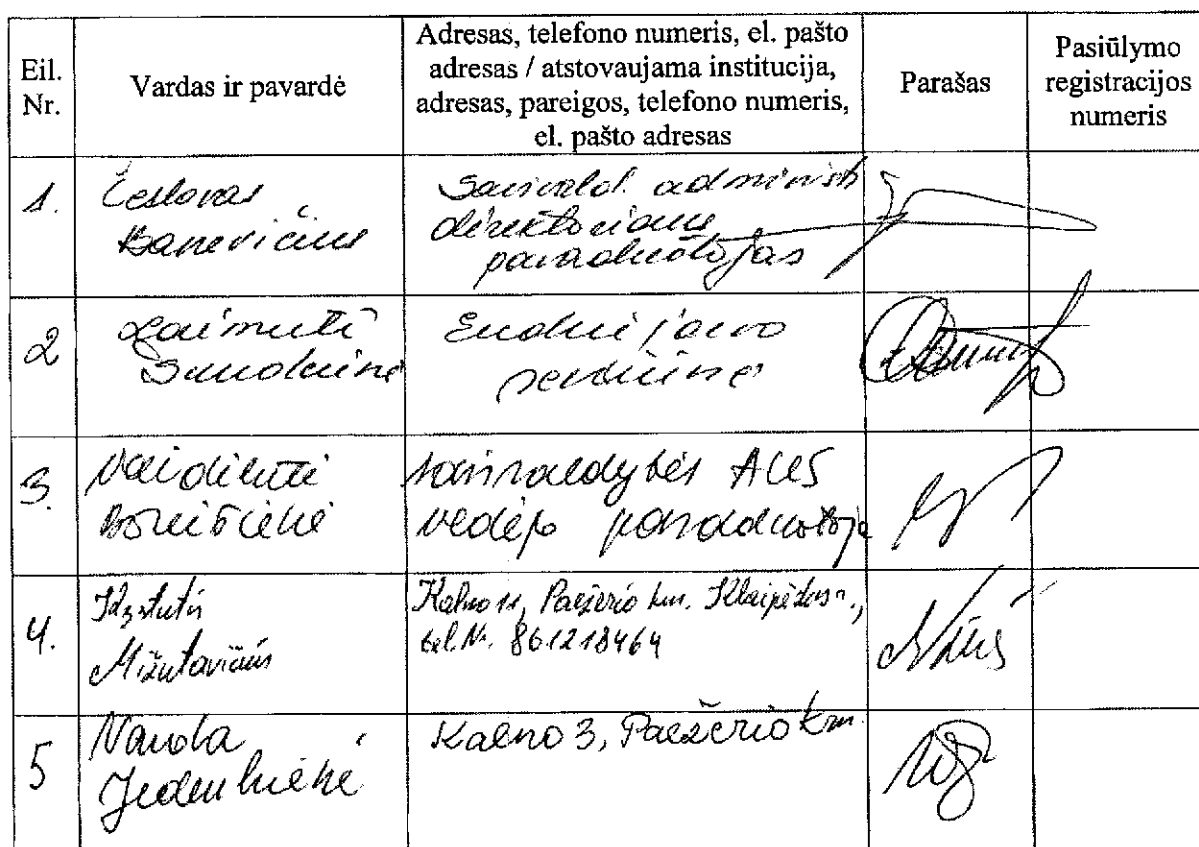 Eil.
Nr.
Vardas ir pavardė
Adresas, telefono numeris, el. pašto
adresas / atstovaujama institucija,
adresas, pareigos, telefono numeris,
el. pašto adresas
Parašas
Pasiūlymo
registracijos
numeris
1.
Česlovas
Banevičius
Savivald. administ
direktoriaus
pavaduotojas
2
Laimutė
Endriejavo
seniūnė
3.
savivaldybės
vedėjo pavaduotoja
4.
Kęstutis
Mižutavičius
Kalno 11, Paežerio km. Klaipėdos r.,
tel. Nr. 861218464
5
Vanda
Kalno 3, Paežerio km.